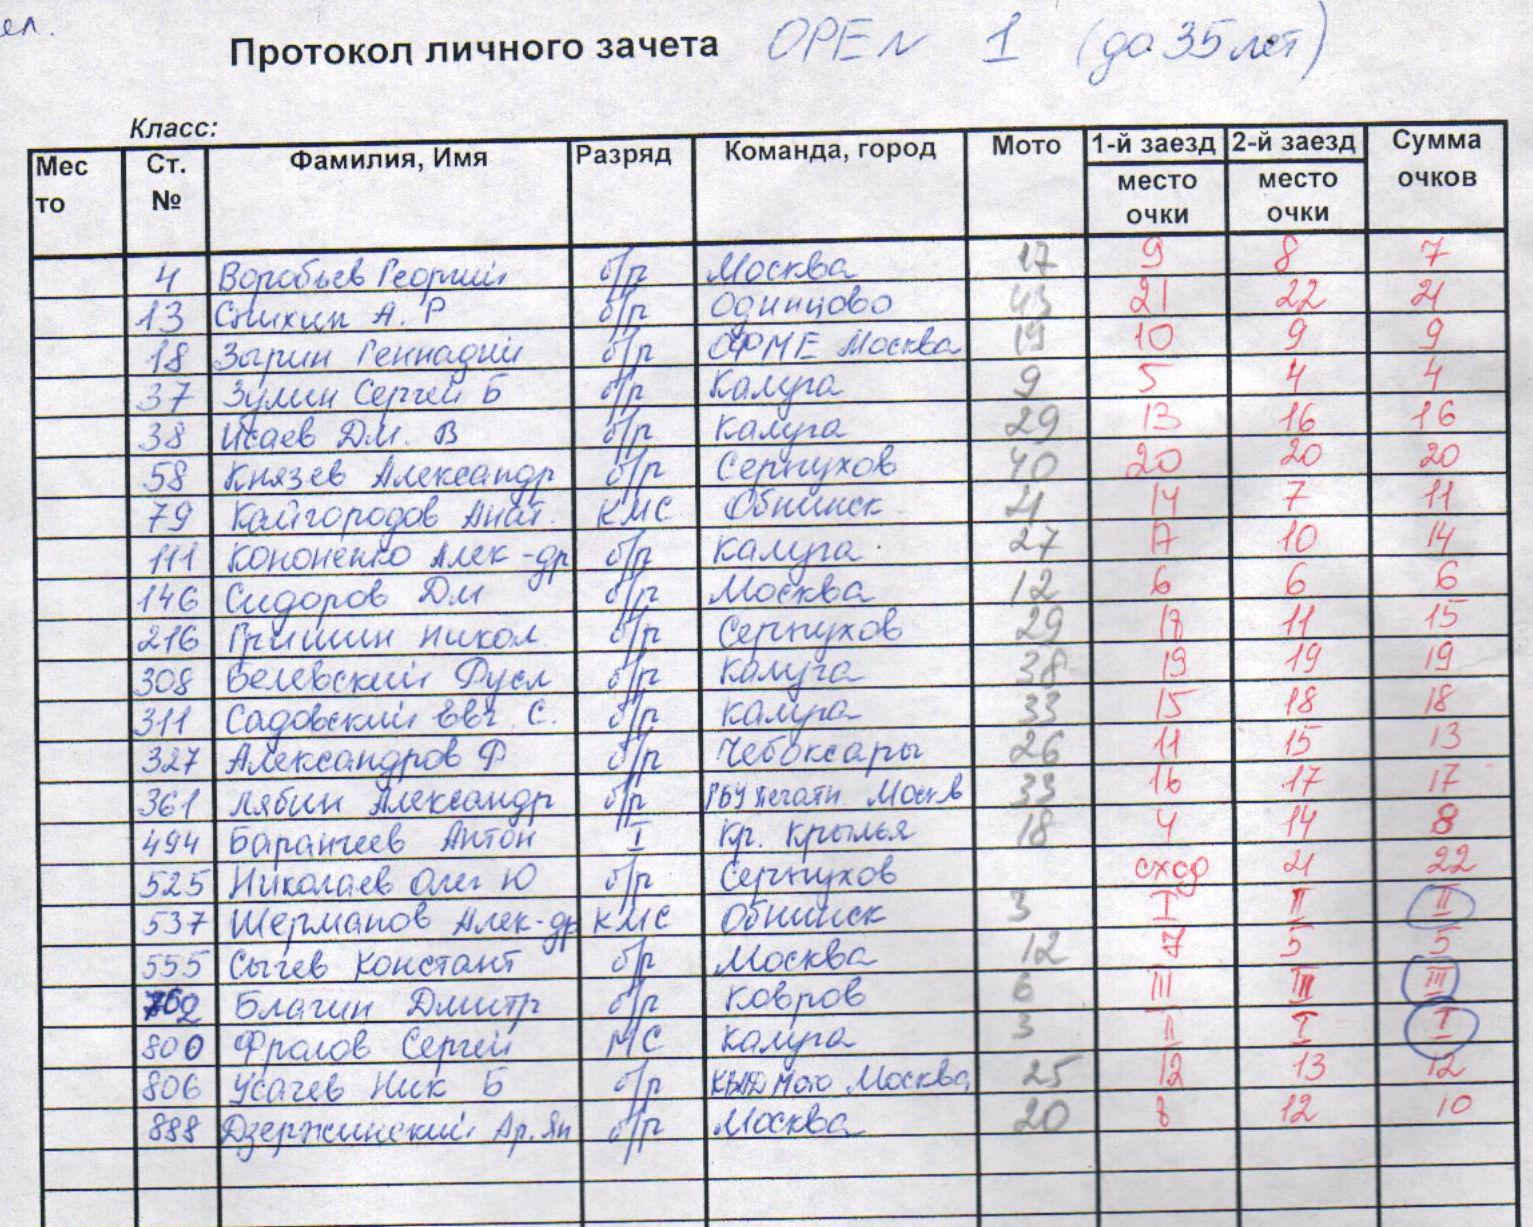 ел.
Протокол личного зачета OPEN 1 (до 35 лет)
Класс:
Место Ст. № Фамилия, Имя Разряд Команда, город Мото 1-й заезд место очки 2-й заезд место очки Сумма очков
4 Воробьев Георгий б/р Москва 17 9 8 7
13 А. Р б/р Одинцово 43 21 22 21
18 Зырин Геннадий б/р ОРМЕ Москва 19 10 9 9
37 Зулин Сергей Б б/р Калуга 9 5 4 4
38 Исаев Дм. В б/р Калуга 29 13 16 16
58 Князев Александр б/р Серпухов 40 20 20 20
79 Кайгородов Анат. КМС Обнинск 21 14 7 11
111 Кононенко Алек-др б/р Калуга 27 17 10 14
146 Сидоров Дм б/р Москва 12 6 6 6
216 Гришин Никол. б/р Серпухов 29 18 11 15
308 Велевский Русл б/р Калуга 38 19 19 19
311 Садовский Евг. С. б/р Калуга 33 15 18 18
327 Александров Ф б/р Чебоксары 26 11 15 13
361 Лябин Александр б/р ГБУ печати Москв 33 16 17 17
494 Баранчеев Антон I Кр. Крылья 18 4 14 8
525 Николаев Олег Ю б/р Серпухов сход 21 22
537 Шерманов Алек-др КМС Обнинск 3 I II II
555 Сычев Констант б/р Москва 12 7 5 5
762 Благин Дмитр б/р Ковров 6 III III III
800 Фролов Сергей МС Калуга 3 II I I
806 Усачев Ник Б б/р Мото Москва 25 12 13 12
888 Дзержинский Ар. Ян б/р Москва 20 8 12 10